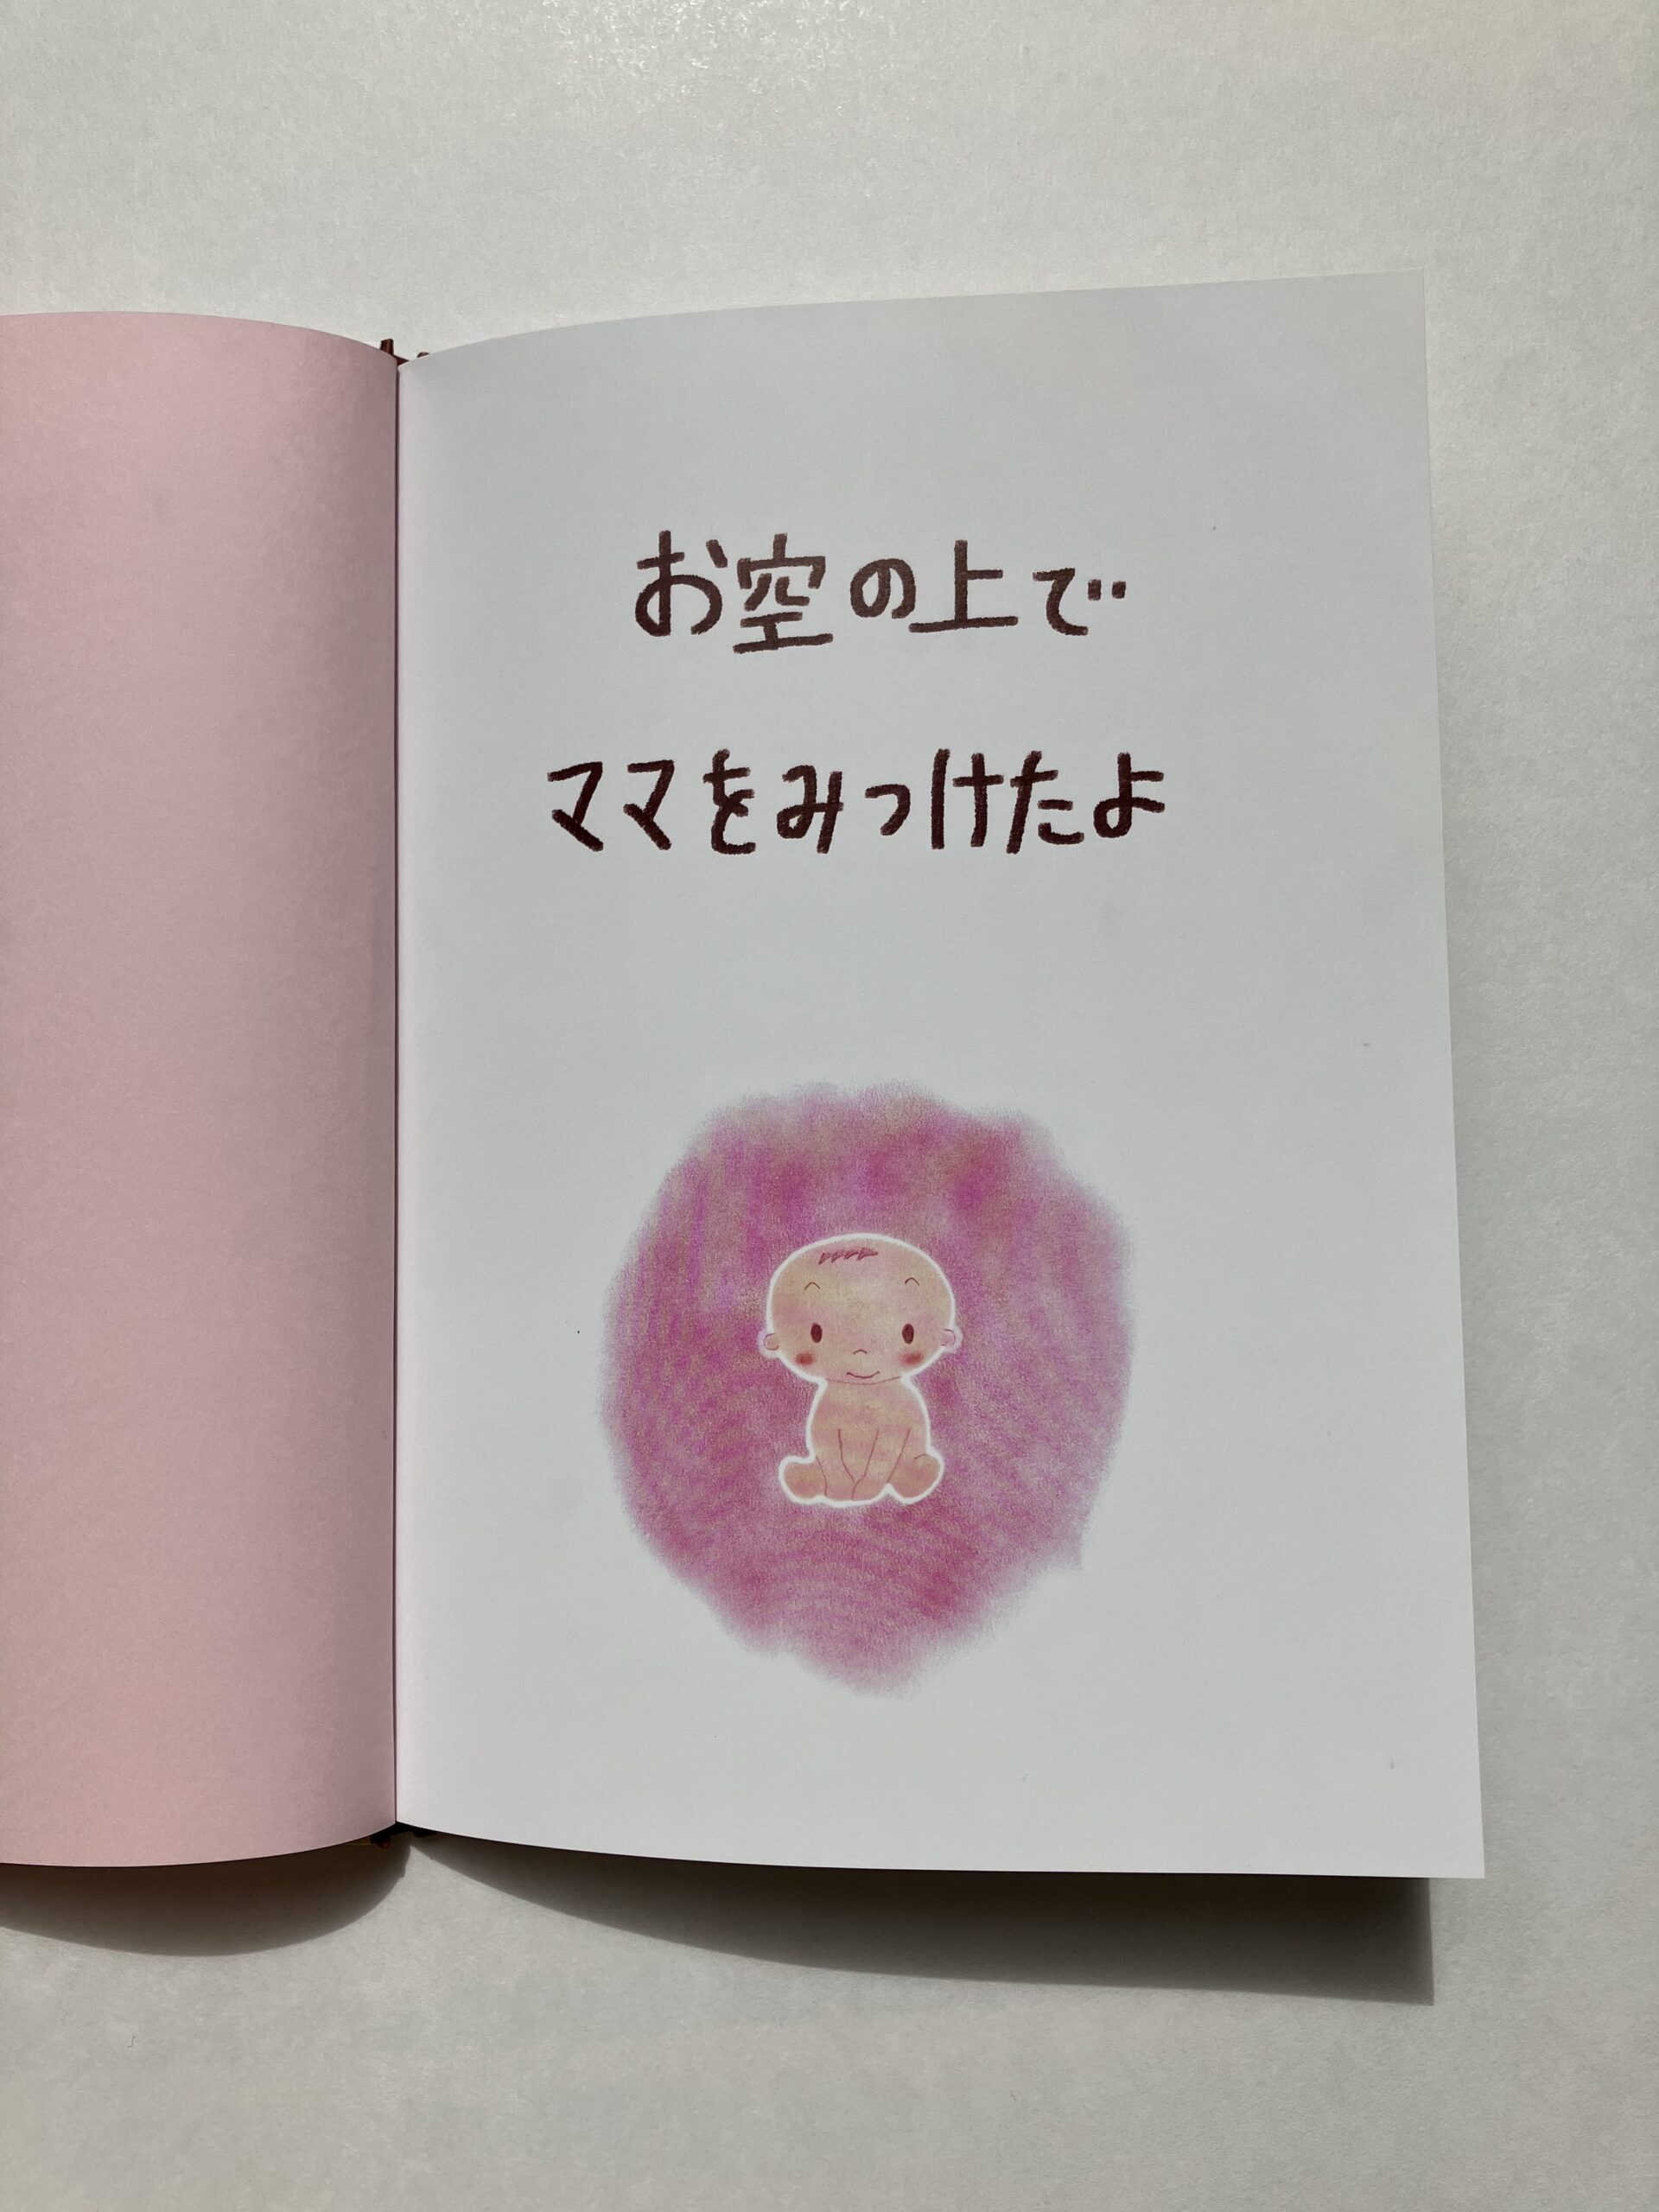 お空の上で
ママをみつけたよ